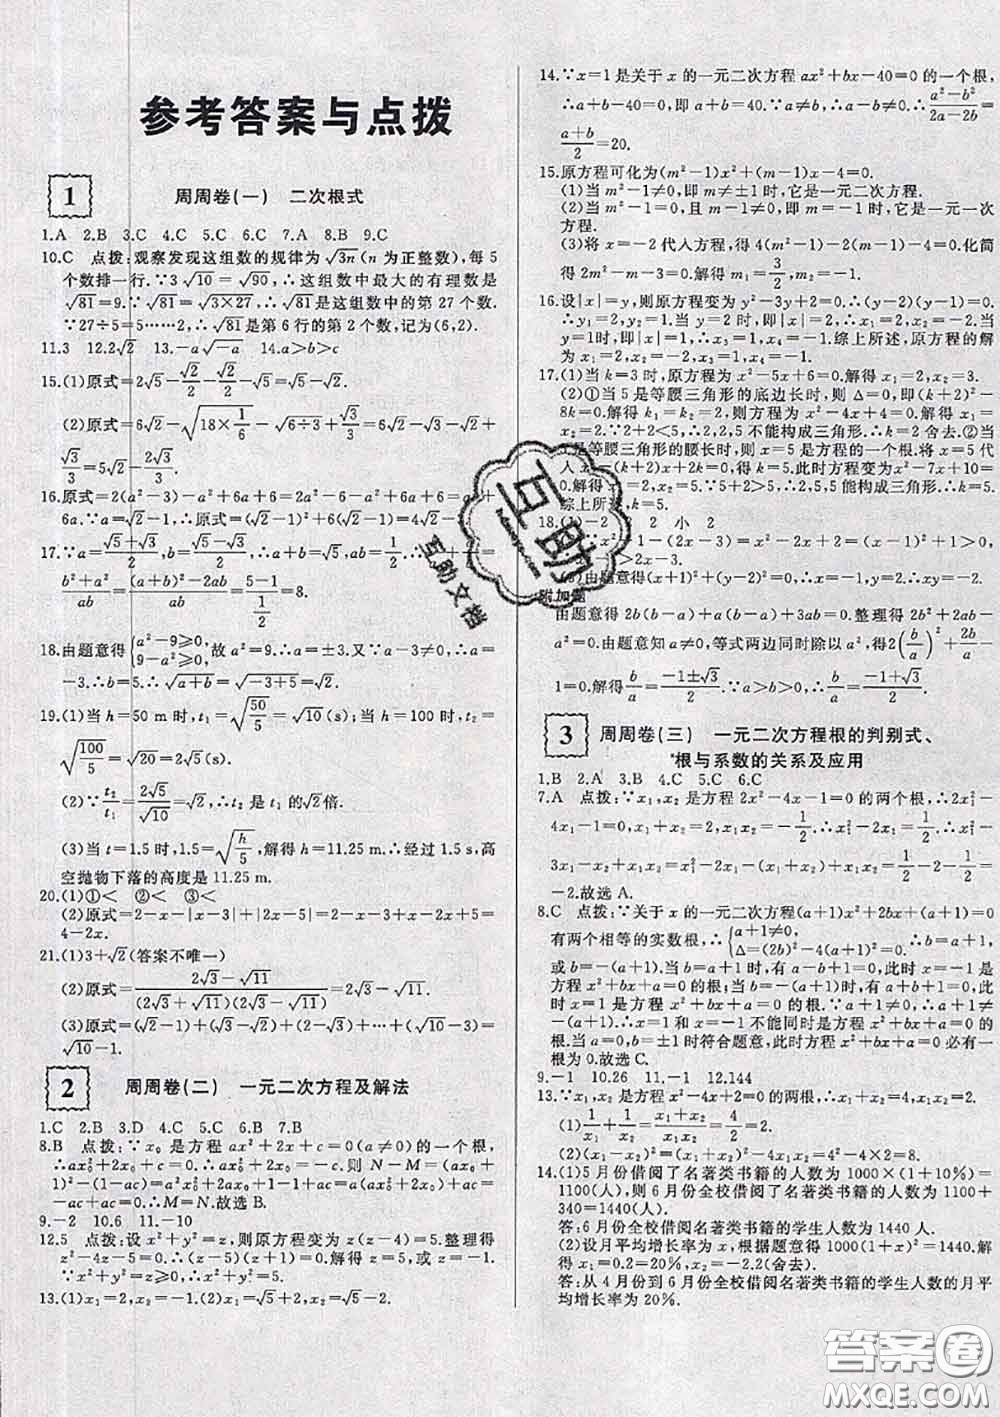 参考答案与点拨
1 周周卷(一) 二次根式
1.A 2.B 3.C 4.C 5.C 6.C 7.A 8.B 9.C
10.C 点拨:观察发现这组数的规律为√3n(n 为正整数),每 5
个数排一行.∵3√10=√90,∴这组数中最大的有理数是
√81=9.∵√81=√3×27,∴√81是这组数中的第 27 个数.
∵27÷5=5……2,∴√81是第 6 行的第 2 个数,记为(6,2).
11.3 12.2√2 13.-a√-a 14.a>b>c
15.(1)原式=2√5-√2/2-√2/2-√5=√5-√2.
(2)原式=6√2-√(18×1/6)-√3+√3/3=6√2-√3-√3+√2+
√3/3=5√2-2√3/3.
16.原式=2(a²-3)-a²+6a+6=2a²-6-a²+6a+6=a²+
6a.∵a=√2-1,∴原式=(√2-1)²+6(√2-1)=4√2-3.
17.∵a=(√5+√3)/2,b=(√5-√3)/2,∴a+b=√5,ab=1/2.∴b/a+a/b=
(b²+a²)/ab=((a+b)²-2ab)/ab=(5-1)/(1/2)=8.
18.由题意得{a²-9≥0, 9-a²≥0,故 a²=9.∴a=±3.又∵a-3≠0,∴a=
-3.∴b=5.∴√a+b=√-3+5=√2.
19.(1)当 h=50 m 时,t₁=√(50/5)=√10(s);当 h=100 时,t₂=
√(100/5)=√20=2√5(s).
(2)∵t₂/t₁=2√5/√10=√2,∴t₂ 是 t₁ 的√2倍.
(3)当 t=1.5 时,1.5=√(h/5),解得 h=11.25.∴经过 1.5 s,高
空抛物下落的高度是 11.25 m.
20.(1)①< ②< ③<
(2)原式=2-x-|x-3|+|2x-5|=2-x-3+x-2x+5=
4-2x.
21.(1)3+√2(答案不唯一)
(2)原式=(2√3-√11)/((2√3+√11)(2√3-√11))=2√3-√11.
(3)原式=(√2-1)+(√3-√2)+(2-√3)+…+(√10-3)=
√10-1.
2 周周卷(二) 一元二次方程及解法
1.C 2.B 3.D 4.C 5.C 6.B 7.B
8.B 点拨:∵x₀ 是方程 ax²+2x+c=0(a≠0)的一个根,
∴ax₀²+2x₀+c=0,∴ax₀²+2x₀=-c.则 N-M=(ax₀+
1)²-(1-ac)=a²x₀²+2ax₀+1-1+ac=a(ax₀²+2x₀)+
ac=-ac+ac=0.∴M=N.故选 B.
9.-2 10.6 11.-10
12.5 点拨:设 x²+y²=z,则原方程变为 z(z-4)=5.整理得
z²-4z-5=0.∴(z-5)(z+1)=0.解得 z=5,或 z=-1.
∵x²+y²=z≥0,∴z=5.∴x²+y²=5.
13.(1)x₁=2,x₂=-1. (2)x₁=√5-2,x₂=-√5-2.
14.∵x=1 是关于 x 的一元二次方程 ax²+bx-40=0 的一个根,
∴a+b-40=0,即 a+b=40.∵a≠b,∴a-b≠0.∴(a²-b²)/(2a-2b)=
(a+b)/2=20.
15.原方程可化为(m²-1)x²+(m-1)x-4=0.
(1)当 m²-1≠0,即 m≠±1 时,它是一元二次方程.
(2)当 m²-1=0,且 m-1≠0,即 m=-1 时,它是一元一次
方程.
(3)将 x=-2 代入方程,得 4(m²-1)-2(m-1)-4=0.化简
得 2m²-m-3=0.解得 m₁=3/2,m₂=-1.
16.设|x|=y,则原方程变为 y²-3y+2=0.∴(y-2)(y-1)=0.
∴y₁=2,y₂=1.当 y=2 时,即|x|=2,∴x₁=2,x₂=-2.当
y=1 时,即|x|=1,∴x₃=1,x₄=-1.综上所述,原方程的解
为 x₁=2,x₂=-2,x₃=1,x₄=-1.
17.(1)当 k=3 时,原方程为 x²-5x+6=0.解得 x₁=2,x₂=3.
(2)①当 5 是等腰三角形的底边长时,则 Δ=0,即(k+2)²-
8k=0.解得 k₁=k₂=2,则方程为 x²-4x+4=0.解得 x₁=
x₂=2.∵2+2<5,∴2,2,5 不能构成三角形.∴k=2 舍去.②当
5 是等腰三角形的腰长时,则 x=5 是方程的一个根.将 x=5 代
入 x²-(k+2)x+2k=0.得 k=5.此时方程为 x²-7x+10=
0.解得 x₁=5,x₂=2.∵5+2>5,∴2,5,5 能构成三角形.∴k=5.
综上所述,k=5.
18.(1)-2 2 小 2
∵x²-1-(2x-3)=x²-2x+2=(x-1)²+1>0,
∴x²-1>2x-3.
(3)由题意得(x+1)²+(y-2)²=0.∴x=-1,y=2.∴xy=-2.
附加题
由题意得 2b(b-a)+a(b-a)+3ab=0.整理得 2b²+2ab-
a²=0.由题意知 a≠0,等式两边同时除以 a²,得2(b/a)²+2b/a-
1=0.解得 b/a=(-1±√3)/2.∵a>b>0,∴b/a=(-1+√3)/2.
3 周周卷(三) 一元二次方程根的判别式、
根与系数的关系及应用
1.B 2.A 3.B 4.C 5.C 6.C
7.A 点拨:∵x₁,x₂ 是方程 2x²-4x-1=0 的两个根,∴2x₁²-
4x₁-1=0,x₁+x₂=2,x₁x₂=-1/2.∴x₁²-2x₁=1/2.∴x₁²-
3x₁-x₂+x₁x₂=x₁²-2x₁-(x₁+x₂)+x₁x₂=1/2-2-1/2=
-2.故选 A.
8.C 点拨:∵关于 x 的一元二次方程(a+1)x²+2bx+(a+1)=0
有两个相等的实数根,∴{a+1≠0, Δ=(2b)²-4(a+1)²=0.∴b=a+1,
或 b=-(a+1).当 b=a+1 时,有 a-b+1=0,此时 x=-1 是
方程 x²+bx+a=0 的根;当 b=-(a+1)时,有 a+b+1=0,此
时 x=1 是方程 x²+bx+a=0 的根.∵a+1≠0,∴a+1≠
-(a+1).∴x=1 和 x=-1 不能同时是方程 x²+bx+a=0 的
根.当 a=0,b=±1时符合题意,此时方程 x²+bx+a=0 必有一
根为 0.故选 C.
9.-1 10.26 11.-1 12.144
13.∵x₁,x₂ 是方程 x²-4x+2=0 的两根,∴x₁+x₂=4,x₁x₂=2.
(1)1/x₁+1/x₂=(x₁+x₂)/x₁x₂=4/2=2.
(2)(x₁-x₂)²=(x₁+x₂)²-4x₁x₂=4²-4×2=8.
14.(1)5 月份借阅了名著类书籍的人数为 1000×(1+10%)=
1100(人),则 6 月份全校借阅了名著类书籍的人数为 1100+
340=1440(人).
答:6 月份全校借阅名著类书籍的学生人数为 1440 人.
(2)设月平均增长率为 x,根据题意得 1000(1+x)²=1440.解
得 x₁=0.2=20%,x₂=-2.2(舍去).
答:从 4 月份到 6 月份全校借阅名著类书籍的学生人数的月平
均增长率为 20%.
互助
互助文档
答案圈
MXQE.COM